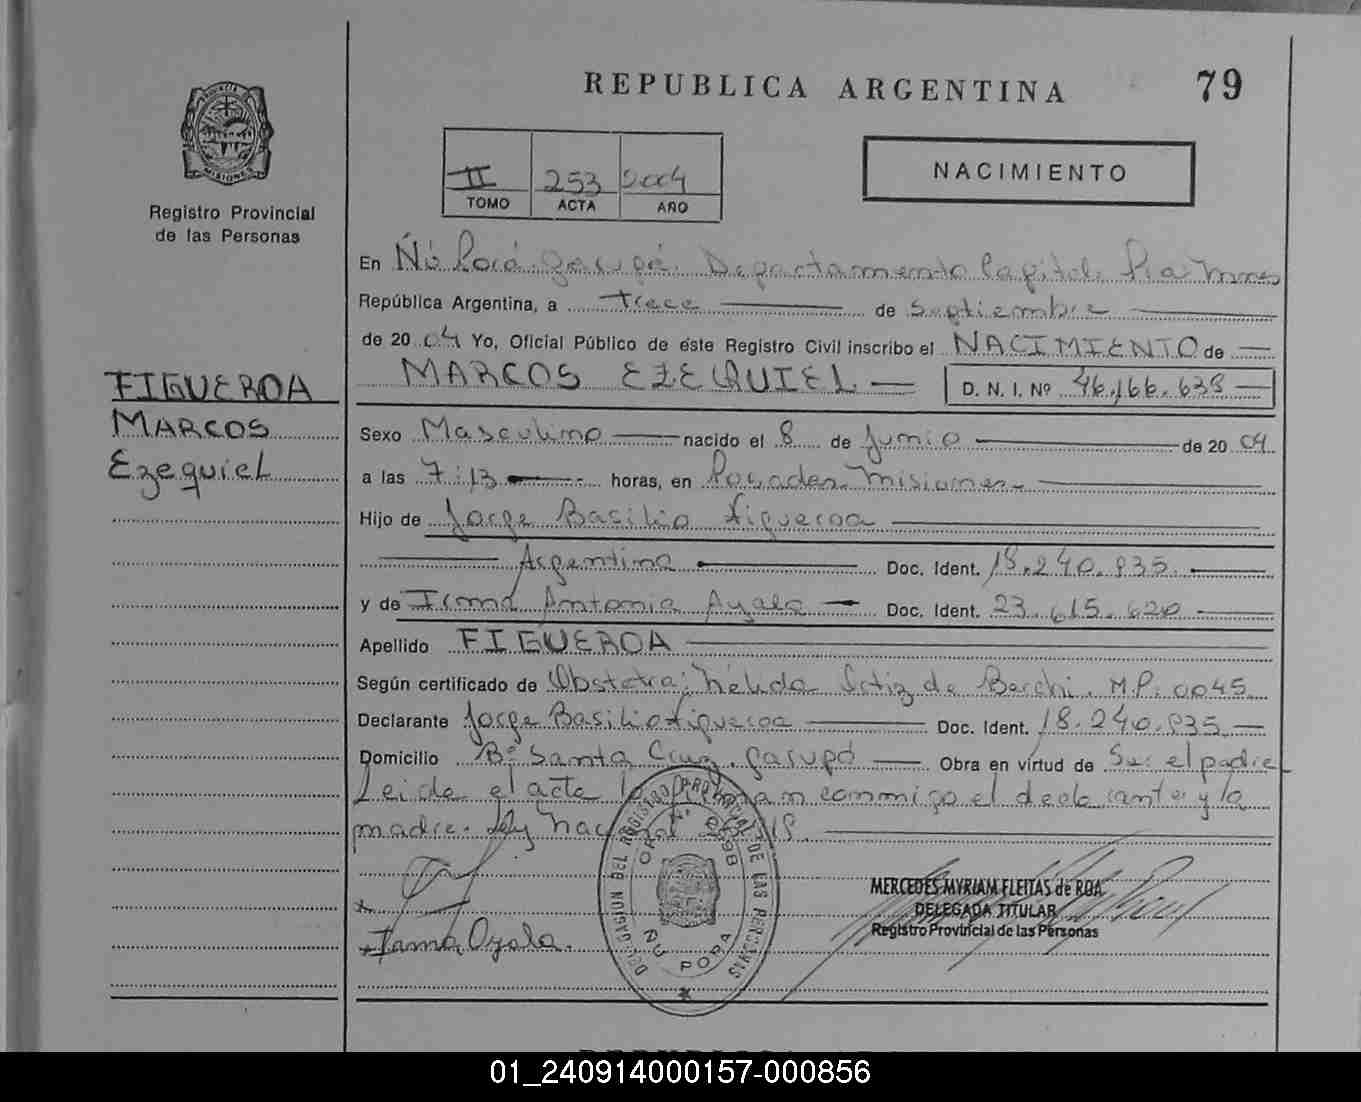 REPUBLICA ARGENTINA 79
II 253 2004
TOMO ACTA AÑO
NACIMIENTO
PROVINCIA DE
MISIONES
Registro Provincial
de las Personas
FIGUEROA
MARCOS
EzequieL
En Ñú Porá. Garupá. Departamento Capital. Pcia Mnes
República Argentina, a trece de septiembre
de 2004 Yo, Oficial Público de este Registro Civil inscribo el NACIMIENTO de
MARCOS EZEQUIEL D. N. I. Nº 46.166.638
Sexo Masculino nacido el 8 de Junio de 2004
a las 7:13 horas, en Posadas. Misiones
Hijo de Jorge Basilio Figueroa
Argentina Doc. Ident. 18.240.835
y de Irma Antonia Ayala Doc. Ident. 23.615.620
Apellido FIGUEROA
Según certificado de Obstetra: Nélida Ortiz de Berchi. M.P. 0045
Declarante Jorge Basilio Figueroa Doc. Ident. 18.240.835
Domicilio Bº Santa Cruz. Garupá Obra en virtud de Ser el padre
Leida el acta la firman conmigo el declarante y la
madre. Ley Nacional
DELEGACION DEL REGISTRO PROVINCIAL DE LAS PERSONAS
ÑU PORA
Irma Ayala.
MERCEDES MYRIAM FLEITAS de ROA
DELEGADA TITULAR
Registro Provincial de las Personas
01_240914000157-000856